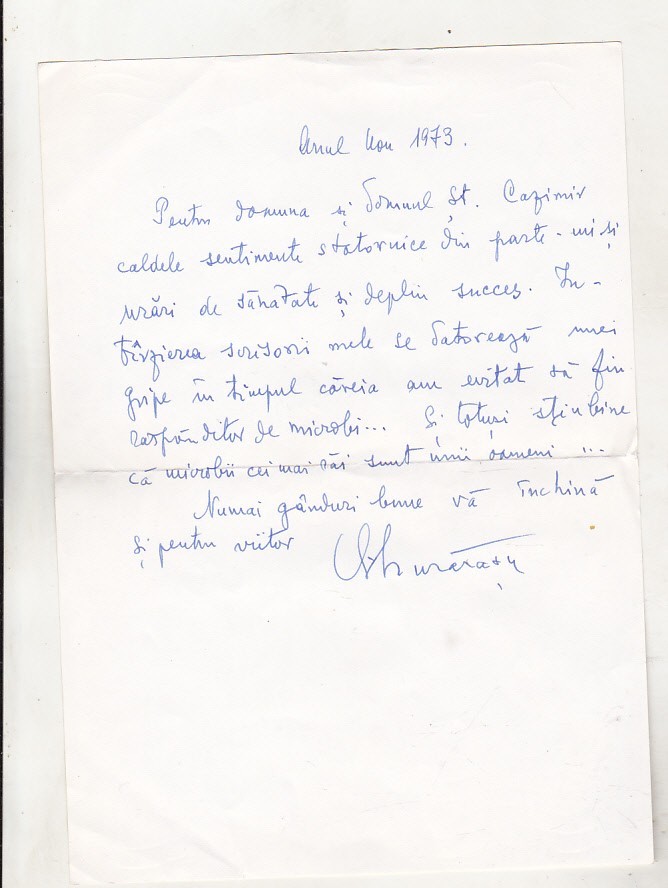 Anul Nou 1973.
Pentru doamna și Domnul Șt. Cazimir
caldele sentimente statornice din parte-mi și
urări de sănătate și deplin succes. În-
tîrzierea scrisorii mele se datorează unei
gripe în timpul căreia am evitat să fiu
răspînditor de microbi... Și totuși știu bine
că microbii cei mai răi sunt unii oameni ...
Numai gânduri bune vă închină
și pentru viitor